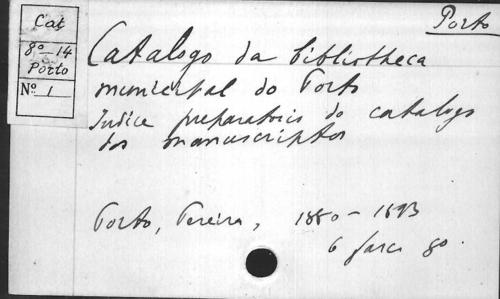 Cat
8º–14
Porto
Nº 1
Porto
Catalogo da bibliotheca
municipal do Porto
Indice preparatorio do catalogo
dos manuscriptos
Porto, Pereira, 1880–1893
6 fasc. 8º.